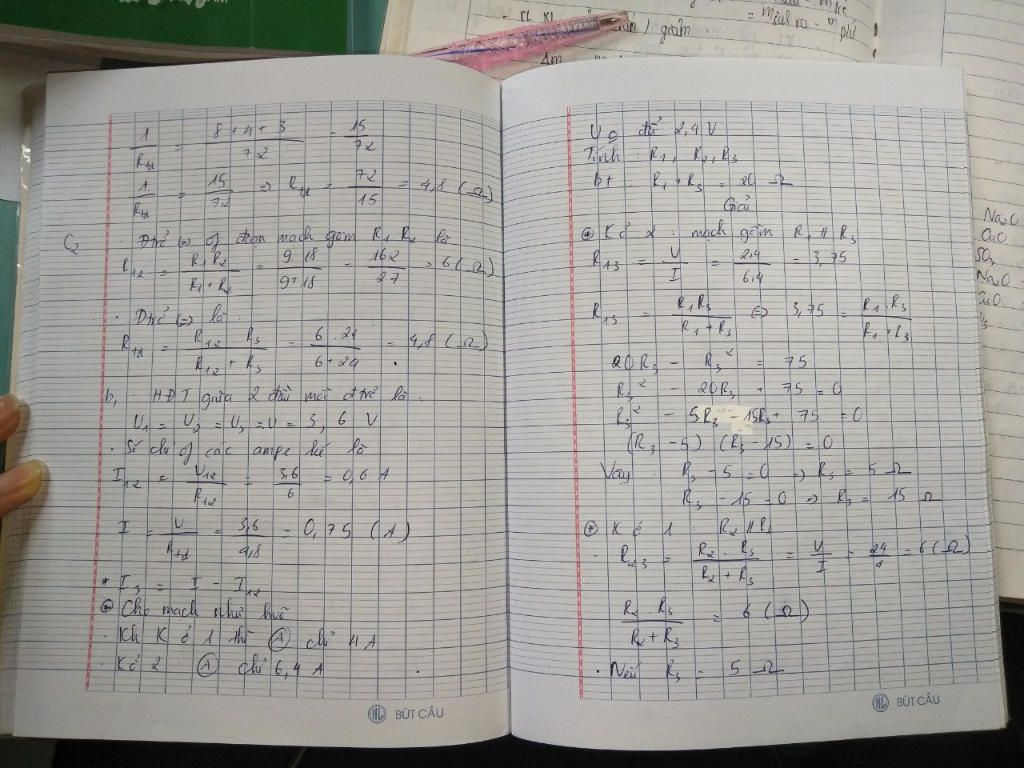 1/R_tđ = (8+4+3)/72 = 15/72
1/R_tđ = 15/72 => R_tđ = 72/15 = 4,8 (Ω)
C2 . Đtrở (=) of đoạn mạch gồm R1 R2 là
R12 = R1 R2/(R1+R2) = 9 18/(9+18) = 162/27 = 6 (Ω)
. Đtrở (=) là
R_tđ = R12 . R3/(R12 + R3) = 6 . 24/(6+24) = 4,8 (Ω)
b, . HĐT giữa 2 đầu mỗi đtrở là
U1 = U2 = U3 = U = 3,6 V
. Số chỉ of các ampe kế là
I12 = U12/R12 = 3,6/6 = 0,6 A
I = U/R_tđ = 3,6/4,8 = 0,75 (A)
* I3 = I - I12
Cho mạch như hvẽ
. Khi K ở 1 thì (A) chỉ 4 A
. K ở 2 (A) chỉ 6,4 A
BÚT CÂU
U 24 V
Tính : R1, R2, R3
bt : R1 + R3 = 20 Ω
Giải
K ở 2 : mạch gồm R1 // R3
R13 = U/I = 24/6,4 = 3,75
R13 = R1 R3/(R1+R3) <=> 3,75 = R1.R3/(R1+R3)
20R3 - R3² = 75
R3² - 20R3 + 75 = 0
R3² - 5R3 - 15R3 + 75 = 0
(R3 - 5) (R3 - 15) = 0
Vậy R3 - 5 = 0 => R3 = 5 Ω
R3 - 15 = 0 => R3 = 15 Ω
K ở 1 : R2 // R3
. R23 = R2 . R3/(R2 + R3) = U/I = 24/4 = 6 (Ω)
R2 R3/(R2 + R3) = 6 (Ω)
. Nếu R3 = 5 Ω
BÚT CÂU
giảm
Na2O
CuO
SO3
Na2O
CuO